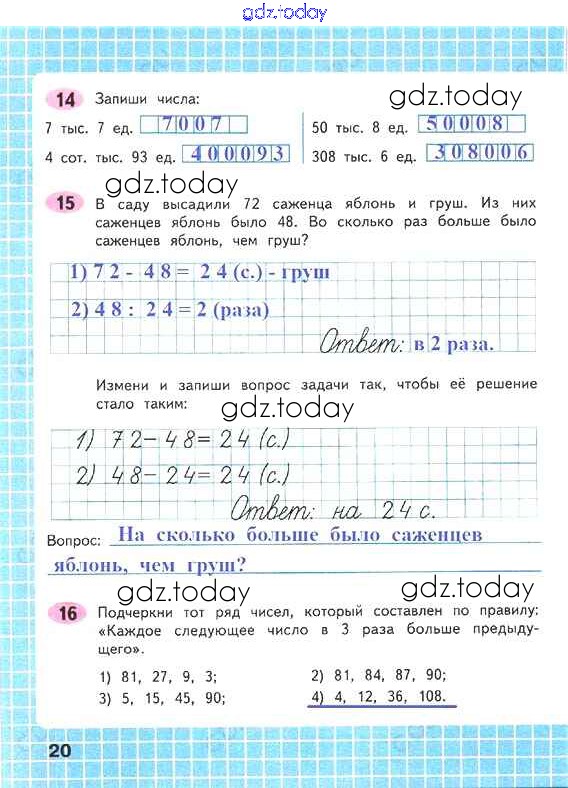 gdz.today
14 Запиши числа: gdz.today
7 тыс. 7 ед. 7007 50 тыс. 8 ед. 50008
4 сот. тыс. 93 ед. 400093 308 тыс. 6 ед. 308006
gdz.today gdz.today
15 В саду высадили 72 саженца яблонь и груш. Из них
саженцев яблонь было 48. Во сколько раз больше было
саженцев яблонь, чем груш?
1) 72 - 48 = 24 (с.) - груш
2) 48 : 24 = 2 (раза)
Ответ: в 2 раза.
Измени и запиши вопрос задачи так, чтобы её решение
стало таким: gdz.today
1) 72 – 48 = 24 (с.)
2) 48 – 24 = 24 (с.)
Ответ: на 24 с.
Вопрос: На сколько больше было саженцев
яблонь, чем груш?
gdz.today gdz.today
16 Подчеркни тот ряд чисел, который составлен по правилу:
«Каждое следующее число в 3 раза больше предыду-
щего».
1) 81, 27, 9, 3; 2) 81, 84, 87, 90;
3) 5, 15, 45, 90; 4) 4, 12, 36, 108.
20